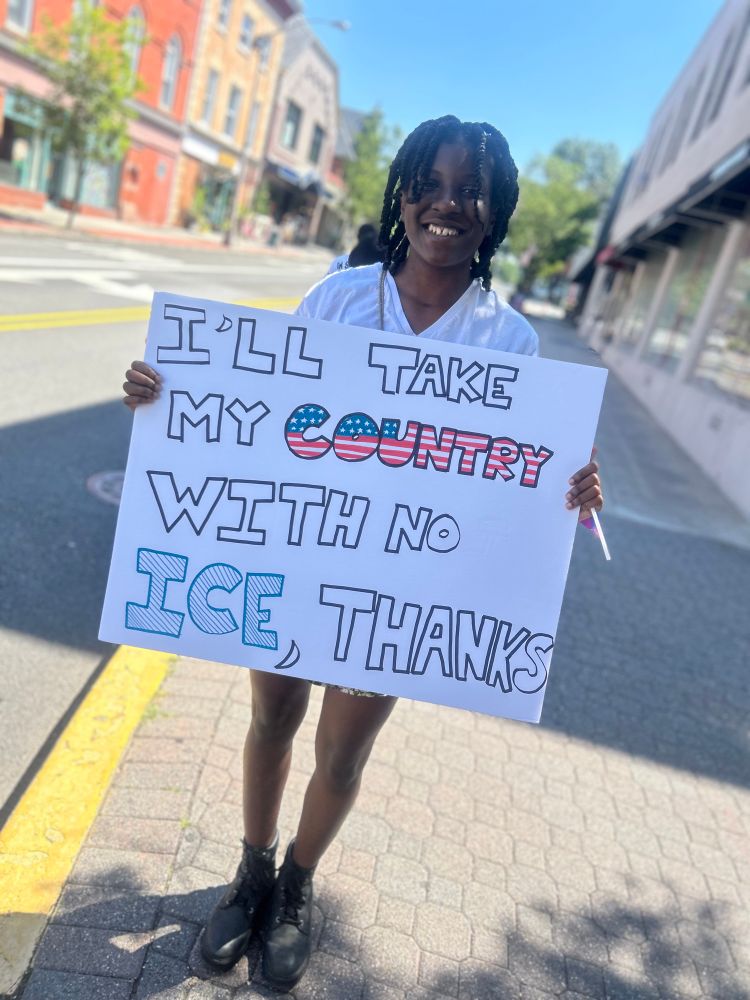 I'LL TAKE
MY COUNTRY
WITH NO
ICE, THANKS